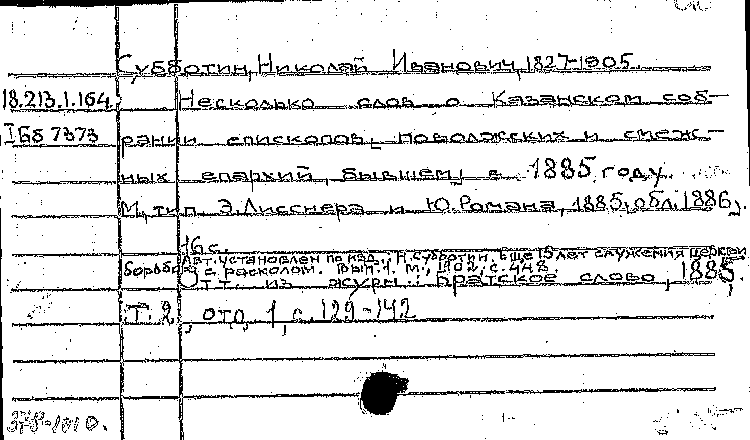 Субботин, Николай Иванович, 1827-1905.
18.213.1.164. Несколько слов о Казанском соб-
I Бб 7373 рании епископов, поволжских и смеж-
ных епархий, бывшем в 1885 году.
М., тип. Э. Лисснера и Ю. Романа, 1885, обл. 1886.
16 с.
Авт. установлен по изд.: Н. Субботин. Еще 15 лет служения церкви
борьбой с расколом. Вып. 1. М., 1902, с. 448.
Отт. из журн.: Братское слово, 1885,
Т. 2, отд. 1, с. 129-142